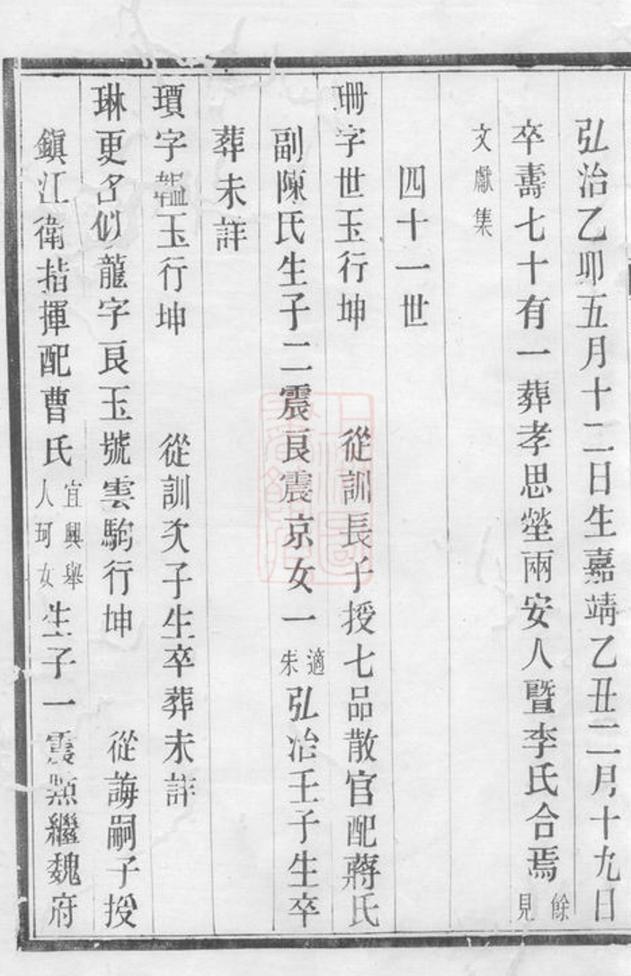 弘治乙卯五月十二日生嘉靖乙丑二月十九日
卒壽七十有一葬孝思塋兩安人暨李氏合焉餘見
文獻集
四十一世
珊字世玉行坤 從訓長子授七品散官配蔣氏
副陳氏生子二震艮震京女一適朱弘治壬子生卒
葬未詳
瓊字韞玉行坤 從訓次子生卒葬未詳
琳更名似龍字良玉號雲駒行坤 從誨嗣子授
鎮江衛指揮配曹氏宜興舉人珂女生子一震點繼魏府